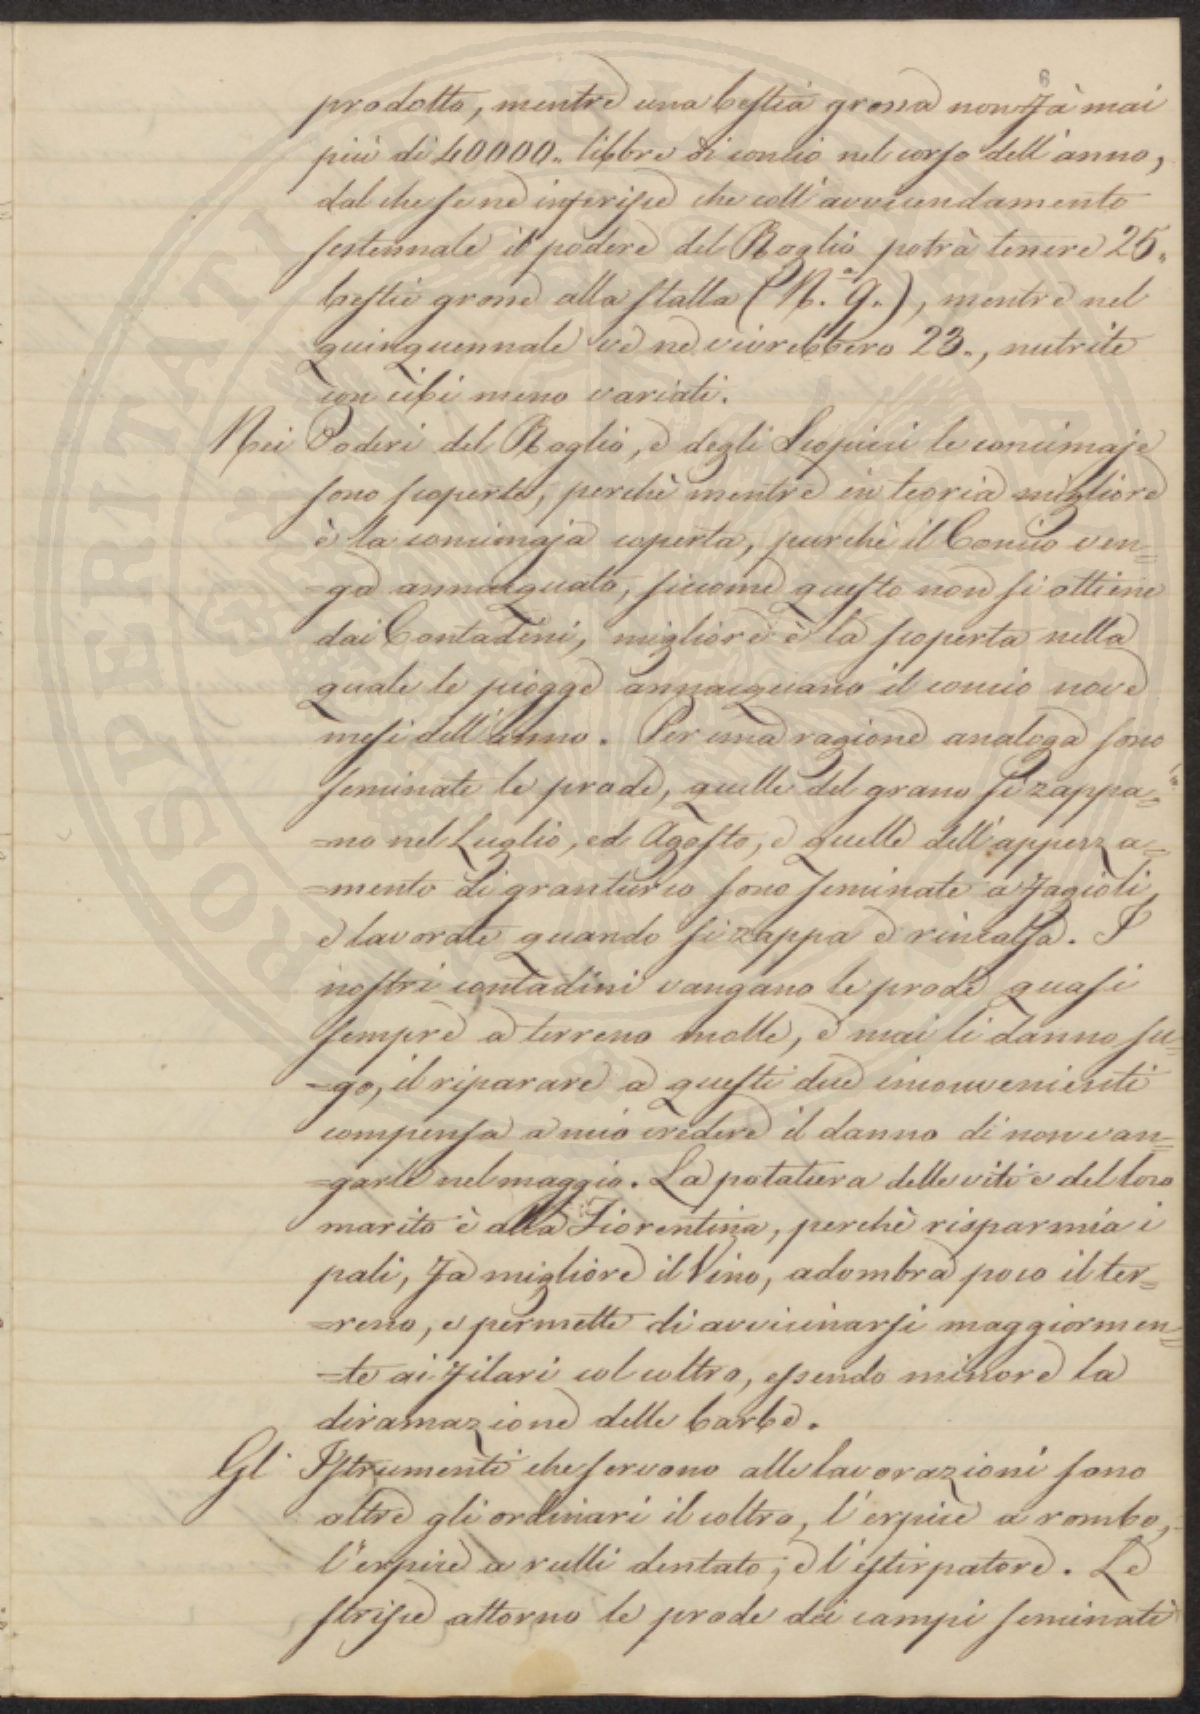 6
prodotto, mentre una bestia grossa non fà mai
più di 40000.. libbre di concio nel corso dell'anno,
dal che se ne inferisce che coll'avvicendamento
sestennale il podere del Roglio potrà tenere 25..
bestie grosse alla stalla (N.° 9.), mentre nel
quinquennale ve ne vivrebbero 23.., nutrite
con cibi meno variati.
Nei Poderi del Roglio, e degli Scopicci le concimaje
sono scoperte, perchè mentre in teoria migliore
è la concimaja coperta, purchè il Concio ven=
=ga annacquato, siccome questo non si ottiene
dai Contadini, migliore è la scoperta nella
quale le piogge annacquano il concio nove
mesi dell'anno. Per una ragione analoga sono
seminate le prode, quelle del grano si zappa=
=no nel Luglio, ed Agosto, e quelle dell'appezza=
=mento di granturco sono seminate a fagioli
e lavorate quando si zappa e rincalsa. I
nostri contadini vangano le prode quasi
sempre a terreno molle, e mai li danno su=
=go, il riparare a questi due inconvenienti
compensa a mio credere il danno di non van=
=garle nel maggio. La potatura delle viti e del loro
marito è alla Fiorentina, perchè risparmia i
pali, fa migliore il Vino, adombra poco il ter=
=reno, e permette di avvicinarsi maggiormen=
=te ai filari col coltro, essendo minore la
diramazione delle barbe.
Gl' Istrumenti che servono alle lavorazioni sono
oltre gli ordinari il coltro, l'erpice a rombo,
l'erpice a rulli dentato, e l'estirpatore. Le
strisce attorno le prode dei campi seminati
PROSPERITATI